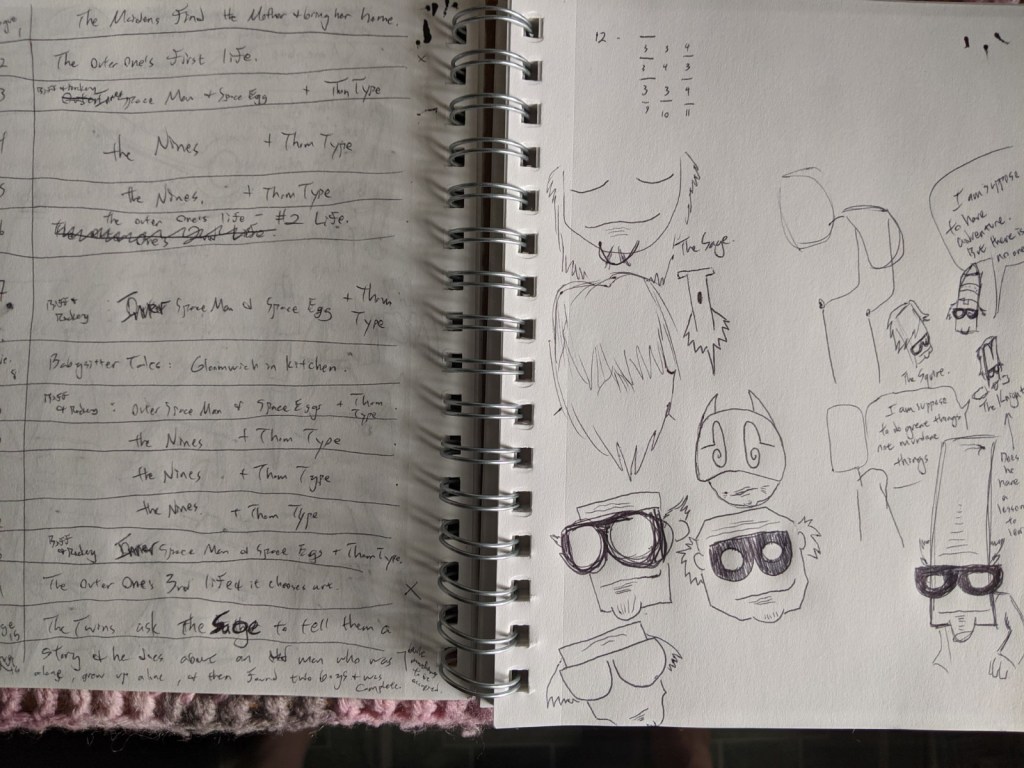 The Maidens Find the Mother & bring her home.
2 The Outer One's First life.
3 Space Man & Space Egg + Thm Type
the Nines + Thum Type
the Nines. + Thum Type
The outer One's life - #2 Life.
Space Man & Space Egg + Thm
Type
8 Babysitter Tales: Gloamwich in kitchen"
: Outer Space Man & Space Eggs + Thm
Type
the Nines + Thum Type
the Nines + Thum Type
the Nines + Thum Type
Space Man & Space Eggs + Thum Type.
The Outer One's 3rd life & it chooses art.
The Twins ask The Sage to tell them a
story & he does about an old man who was
alone, grew up alone, & then found two boys & was
Complete
12.
5 5 4
3 4 3
3 3 4
9 10 11
The Sage.
I am suppose
to have
adventure.
But there is
no one
The Squire.
The Knight
I am suppose
to do great things
not mundane
things
Does
he
have
a
lesson
to